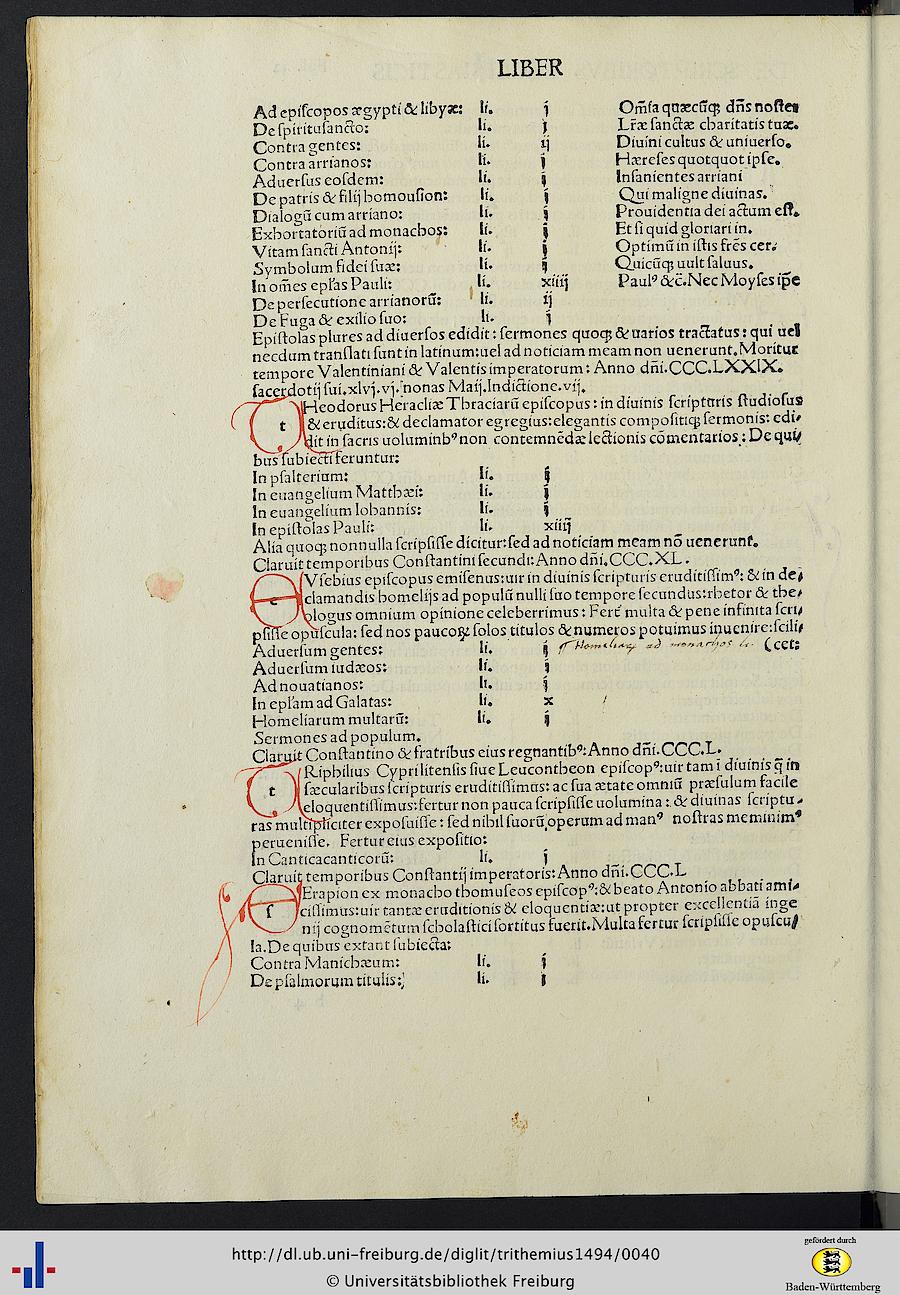 LIBER
Ad episcopos ægypti & libyæ: li. j Om̃ia quæcũq; dñs noster
De spiritu sancto: li. j Lr̃æ sanctæ charitatis tuæ.
Contra gentes: li. ij Diuini cultus & uniuerso.
Contra arrianos: li. j Hæreses quotquot ipse.
Aduersus eosdem: li. j Insanientes arriani
De patris & filij homousion: li. j Qui maligne diuinas.
Dialogũ cum arriano: li. j Prouidentia dei actum est.
Exhortatoriũ ad monachos: li. j Et si quid gloriari in.
Vitam sancti Antonij: li. j Optimũ in istis fr̃es cer.
Symbolum fidei suæ: li. j Quicũq; uult saluus.
In om̃es epl̃as Pauli: li. xiiij Paulꝰ &c̃. Nec Moyses ip̃e
De persecutione arrianorũ: li. ij
De Fuga & exilio suo: li. j
Epistolas plures ad diuersos edidit: sermones quoq; & uarios tractatus: qui uel
necdum translati sunt in latinum: uel ad noticiam meam non uenerunt. Moritur
tempore Valentiniani & Valentis imperatorum: Anno dñi. CCC.LXXIX.
sacerdotij sui. xlvj. vj. nonas Maij. Indictione. vij.
t Heodorus Heracliæ Thraciarũ episcopus: in diuinis scripturis studiosus
& eruditus: & declamator egregius: elegantis compositiq; sermonis: edi⸗
dit in sacris uoluminbꝰ non contemnẽdæ lectionis cõmentarios: De qui⸗
bus subiecti feruntur:
In psalterium: li. j
In euangelium Matthæi: li. j
In euangelium Iohannis: li. j
In epistolas Pauli: li. xiiij
Alia quoq; nonnulla scripsisse dicitur: sed ad noticiam meam nõ uenerunt.
Claruit temporibus Constantini secundi: Anno dñi. CCC.XL.
e Vsebius episcopus emisenus: uir in diuinis scripturis eruditissimꝰ: & in de⸗
clamandis homelijs ad populũ nulli suo tempore secundus: rhetor & the⸗
ologus omnium opinione celeberrimus: Fert̃ multa & pene infinita scri⸗
psisse opuscula: sed nos paucoꝝ solos titulos & numeros potuimus inuenire: scili⸗
Aduersum gentes: li. j Homeliaꝝ ad monachos li. (cet:
Aduersum iudæos: li. j
Ad nouatianos: li. j
In epl̃am ad Galatas: li. x
Homeliarum multarũ: li. j
Sermones ad populum.
Claruit Constantino & fratribus eius regnantibꝰ: Anno dñi. CCC.L.
t Riphilius Cyprilitensis siue Leucontheon episcopꝰ: uir tam ĩ diuinis q̃ in
sæcularibus scripturis eruditissimus: ac sua ætate omniũ præsulum facile
eloquentissimus: fertur non pauca scripsisse uolumina: & diuinas scriptu⸗
ras multipliciter exposuisse: sed nihil suorũ operum ad manꝰ nostras meminimꝰ
peruenisse. Fertur eius expositio:
In Canticacanticorũ: li. j
Claruit temporibus Constantij imperatoris: Anno dñi. CCC.L
s Erapion ex monacho thomuseos episcopꝰ: & beato Antonio abbati ami⸗
cissimus: uir tantæ eruditionis & eloquentiæ: ut propter excellentiã inge
nij cognomẽtum scholastici sortitus fuerit. Multa fertur scripsisse opuscu⸗
la. De quibus extant subiecta:
Contra Manichæum: li. j
De psalmorum titulis: li. j
http://dl.ub.uni-freiburg.de/diglit/trithemius1494/0040
© Universitätsbibliothek Freiburg
gefördert durch
Baden-Württemberg